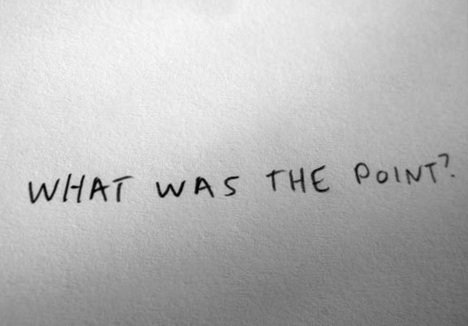 WHAT WAS THE POINT?